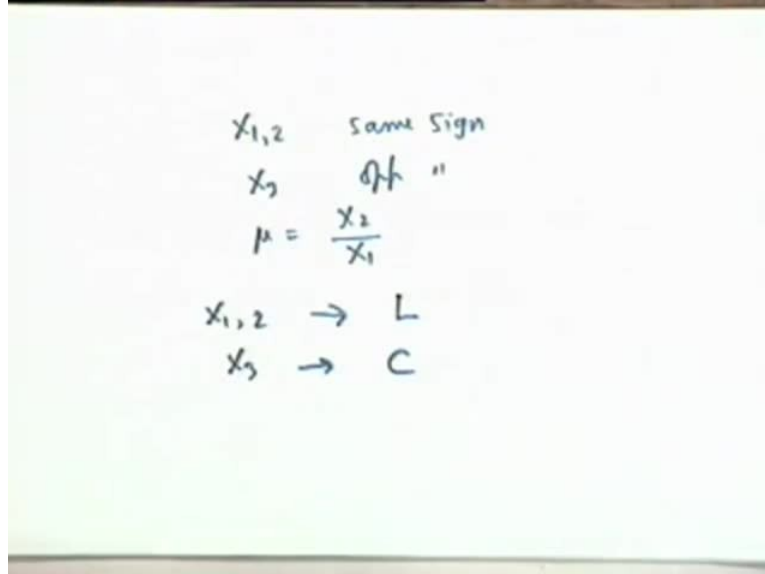 X₁,₂ same sign
X₃ Opp "
μ = X₂ / X₁
X₁,₂ → L
X₃ → C